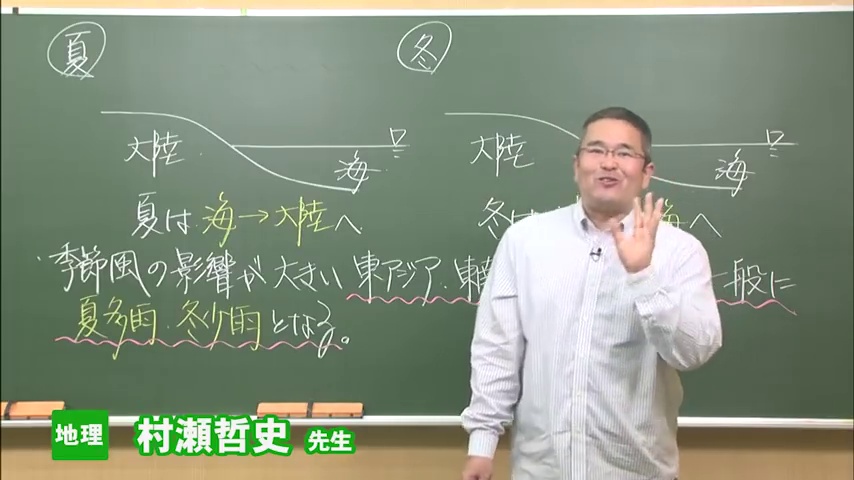 夏
冬
大陸
海
大陸
海
夏は 海→大陸へ
冬は 海へ
季節風の影響が大きい 東アジア・東 一般に
夏多雨・冬少雨となる。
地理 村瀬哲史 先生